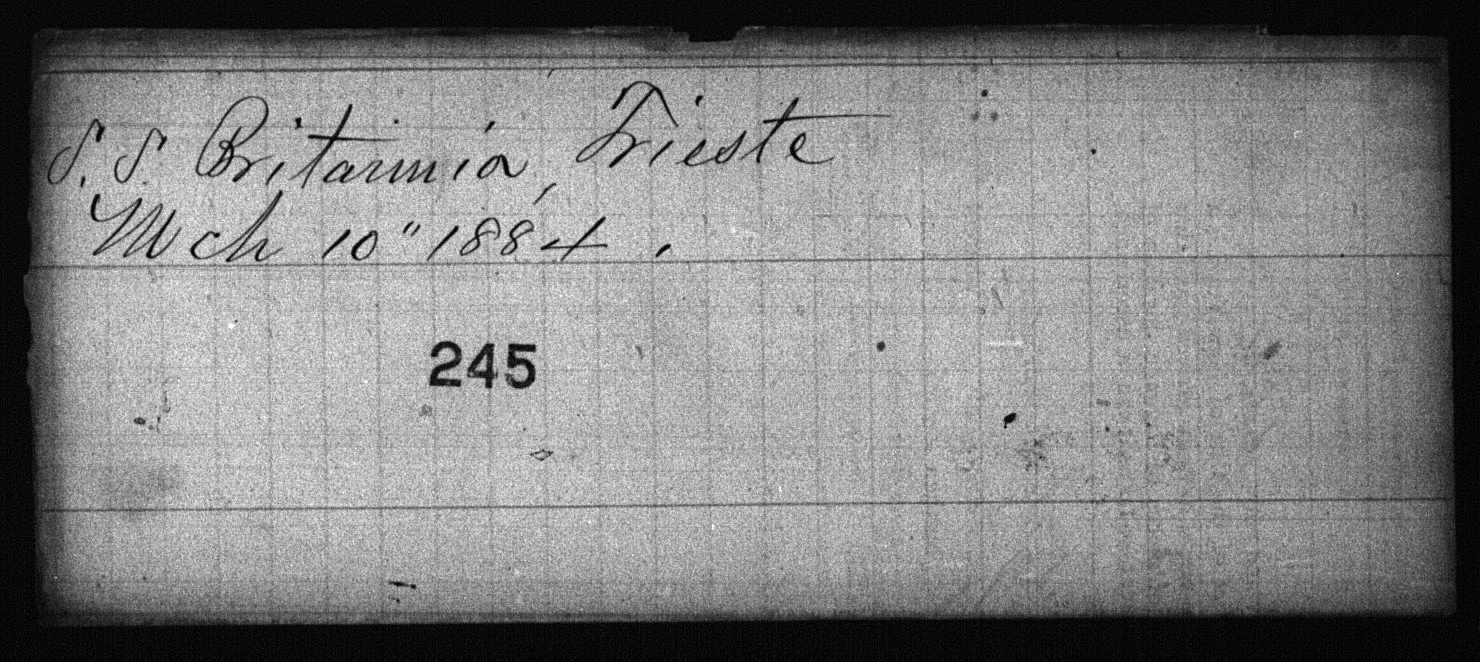 S. S. Britannia, Trieste
Mch 10" 1884.
245